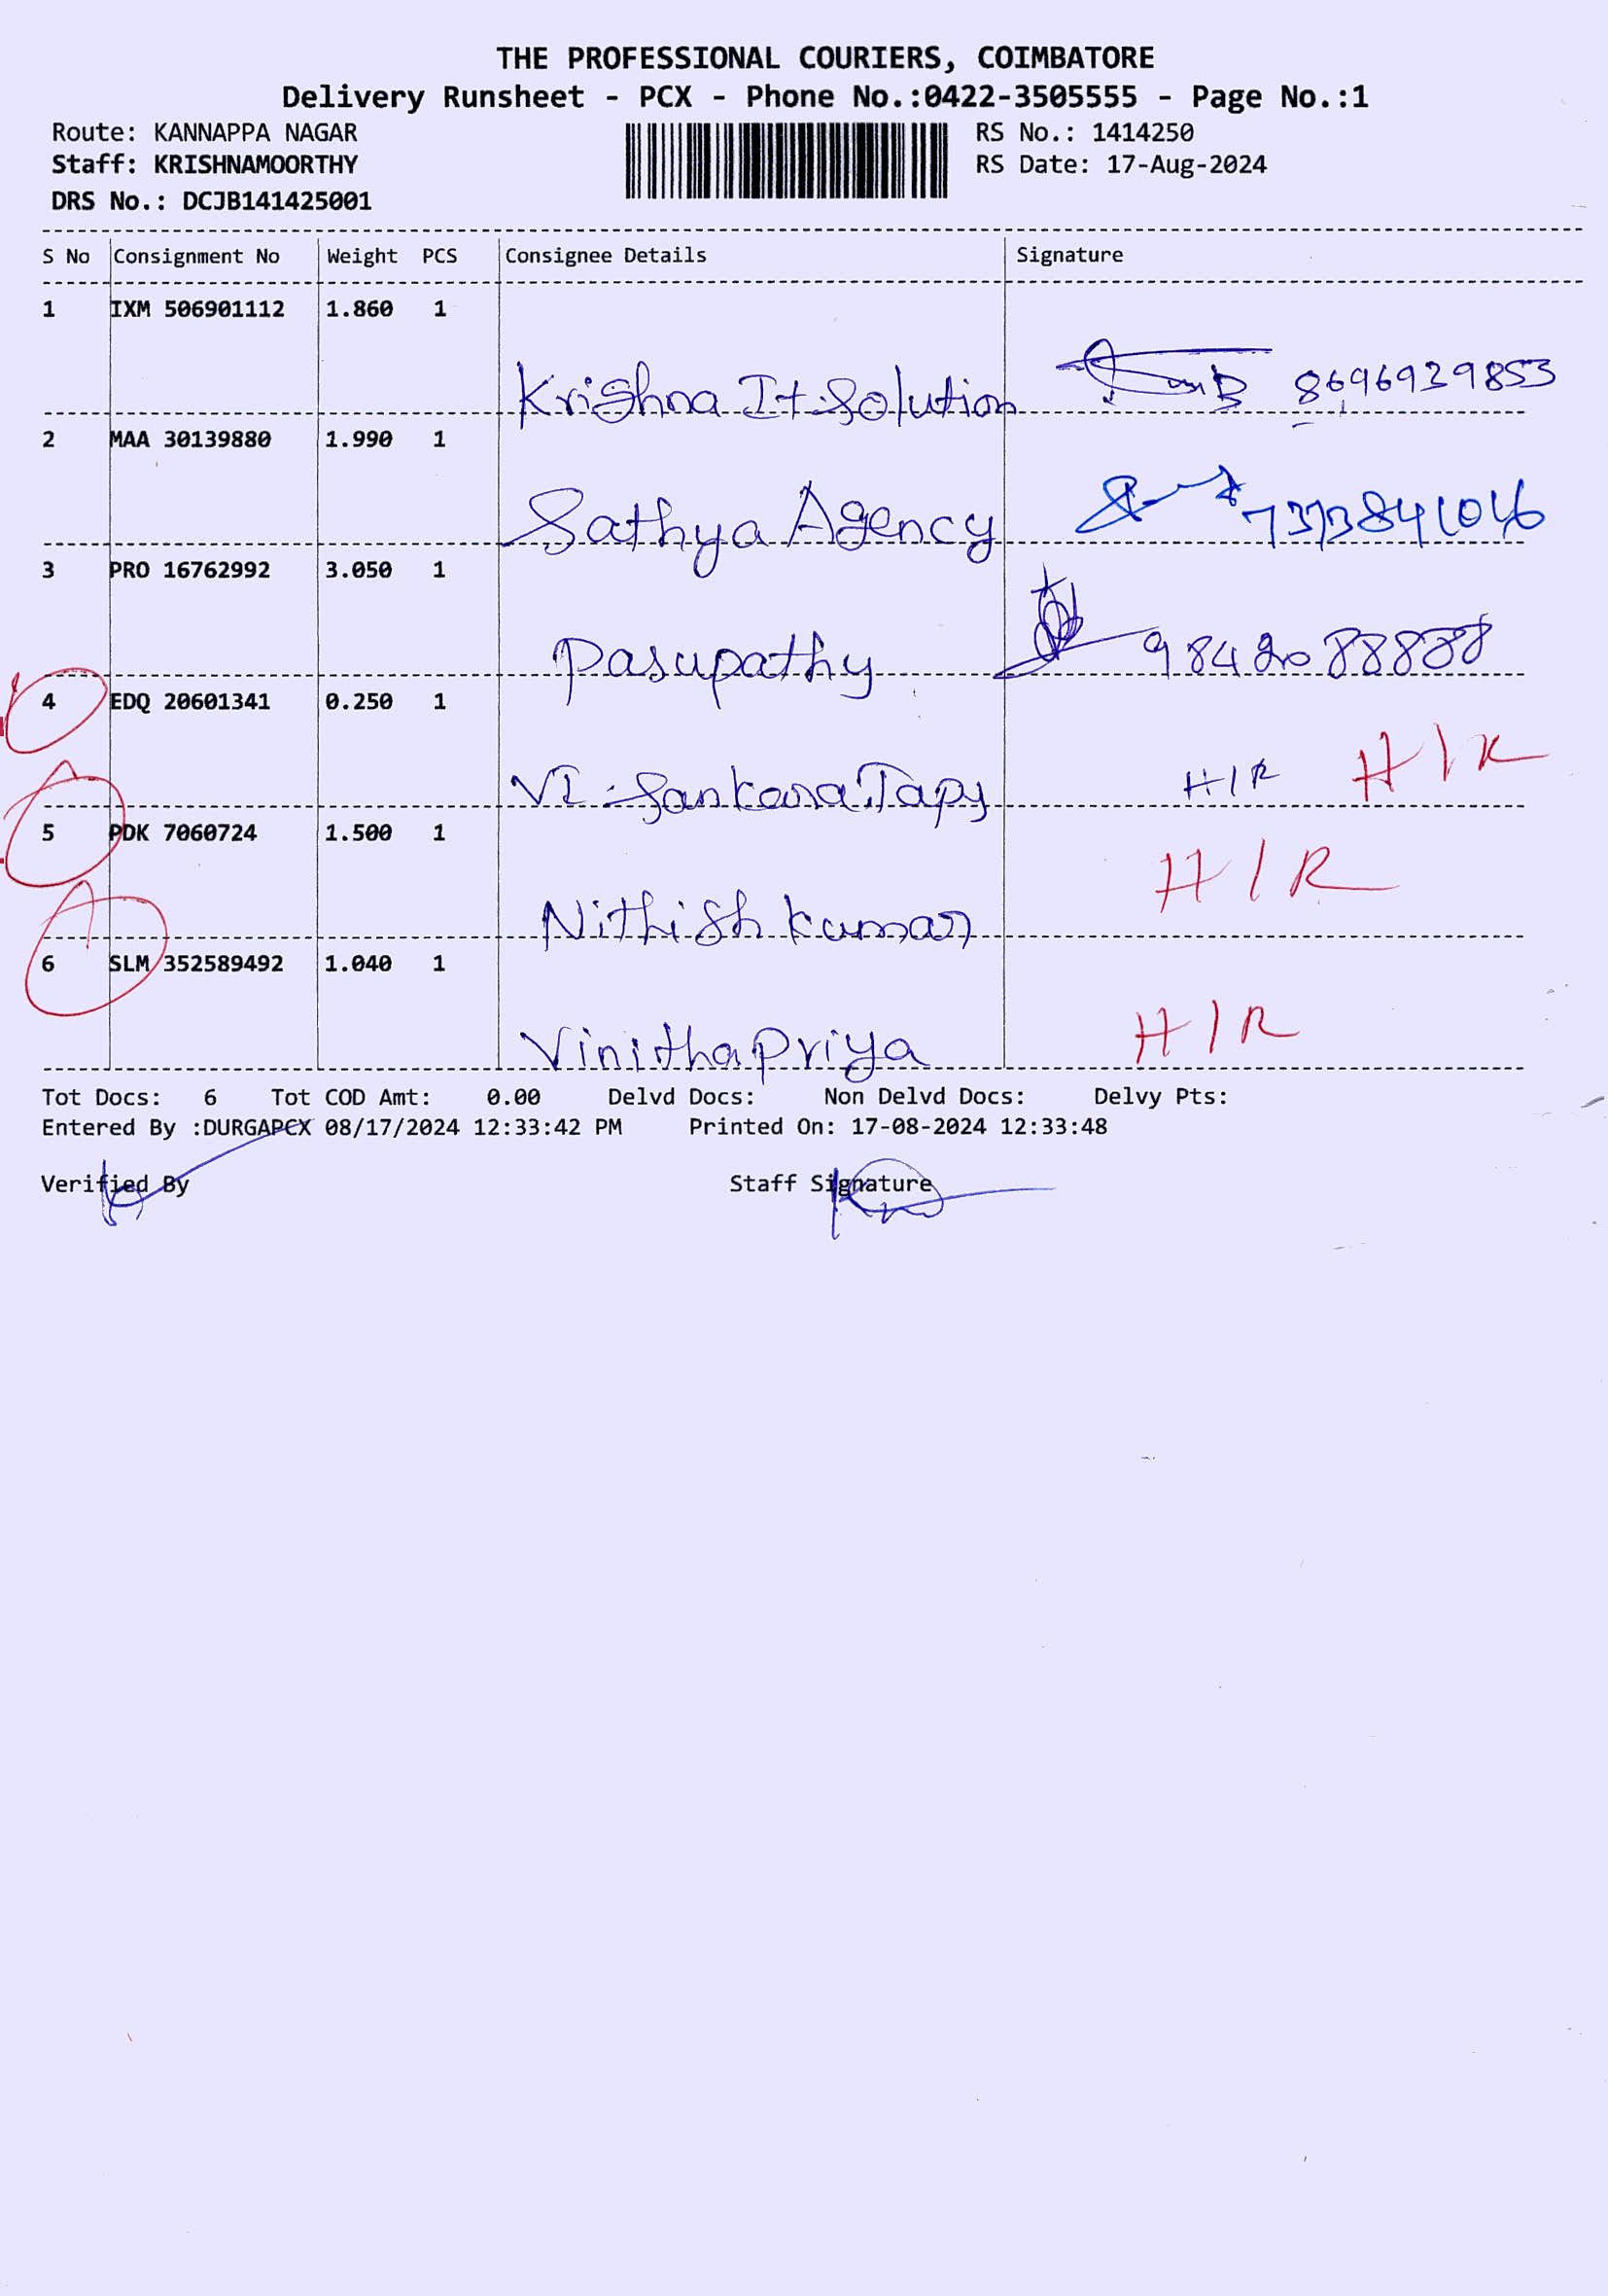 THE PROFESSIONAL COURIERS, COIMBATORE
Delivery Runsheet - PCX - Phone No.:0422-3505555 - Page No.:1
Route: KANNAPPA NAGAR RS No.: 1414250
Staff: KRISHNAMOORTHY RS Date: 17-Aug-2024
DRS No.: DCJB141425001
S No Consignment No Weight PCS Consignee Details Signature
1 IXM 506901112 1.860 1
Krishna It Solution 8696929853
2 MAA 30139880 1.990 1
Sathya Agency
3 PRO 16762992 3.050 1
Pasupathy 9842088888
4 EDQ 20601341 0.250 1
H/R H/R
5 PDK 7060724 1.500 1
Nithish kumar H/R
6 SLM 352589492 1.040 1
Vinitha Priya H/R
Tot Docs: 6 Tot COD Amt: 0.00 Delvd Docs: Non Delvd Docs: Delvy Pts:
Entered By :DURGAPCX 08/17/2024 12:33:42 PM Printed On: 17-08-2024 12:33:48
Verified By Staff Signature